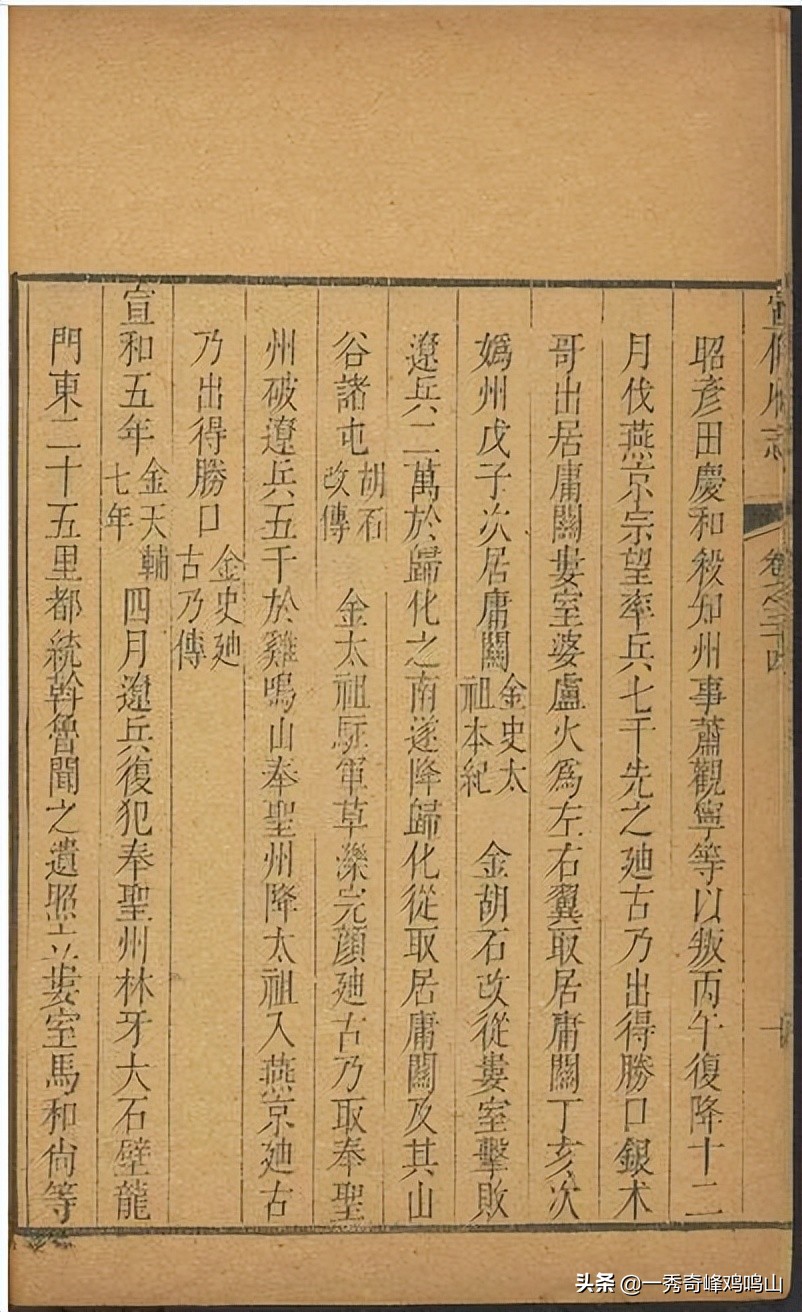 宣化府志 卷之三十四
昭彥田慶和殺知州事蕭觀寧等以叛丙午復降十二
月伐燕京宗望率兵七千先之廸古乃出得勝口銀术
哥出居庸關婁室婆盧火爲左右翼取居庸關丁亥次
媯州戊子次居庸關金史太祖本紀 金胡石改從婁室擊敗
遼兵二萬於歸化之南遂降歸化從取居庸關及其山
谷諸屯胡石改傳 金太祖駐軍草濼完顏廸古乃取奉聖
州破遼兵五千於雞鳴山奉聖州降太祖入燕京廸古
乃出得勝口金史廸古乃傳
宣和五年金天輔七年四月遼兵復犯奉聖州林牙大石壁龍
門東二十五里都統斡魯聞之遣照立婁室馬和尙等
头条 @一秀奇峰鸡鸣山